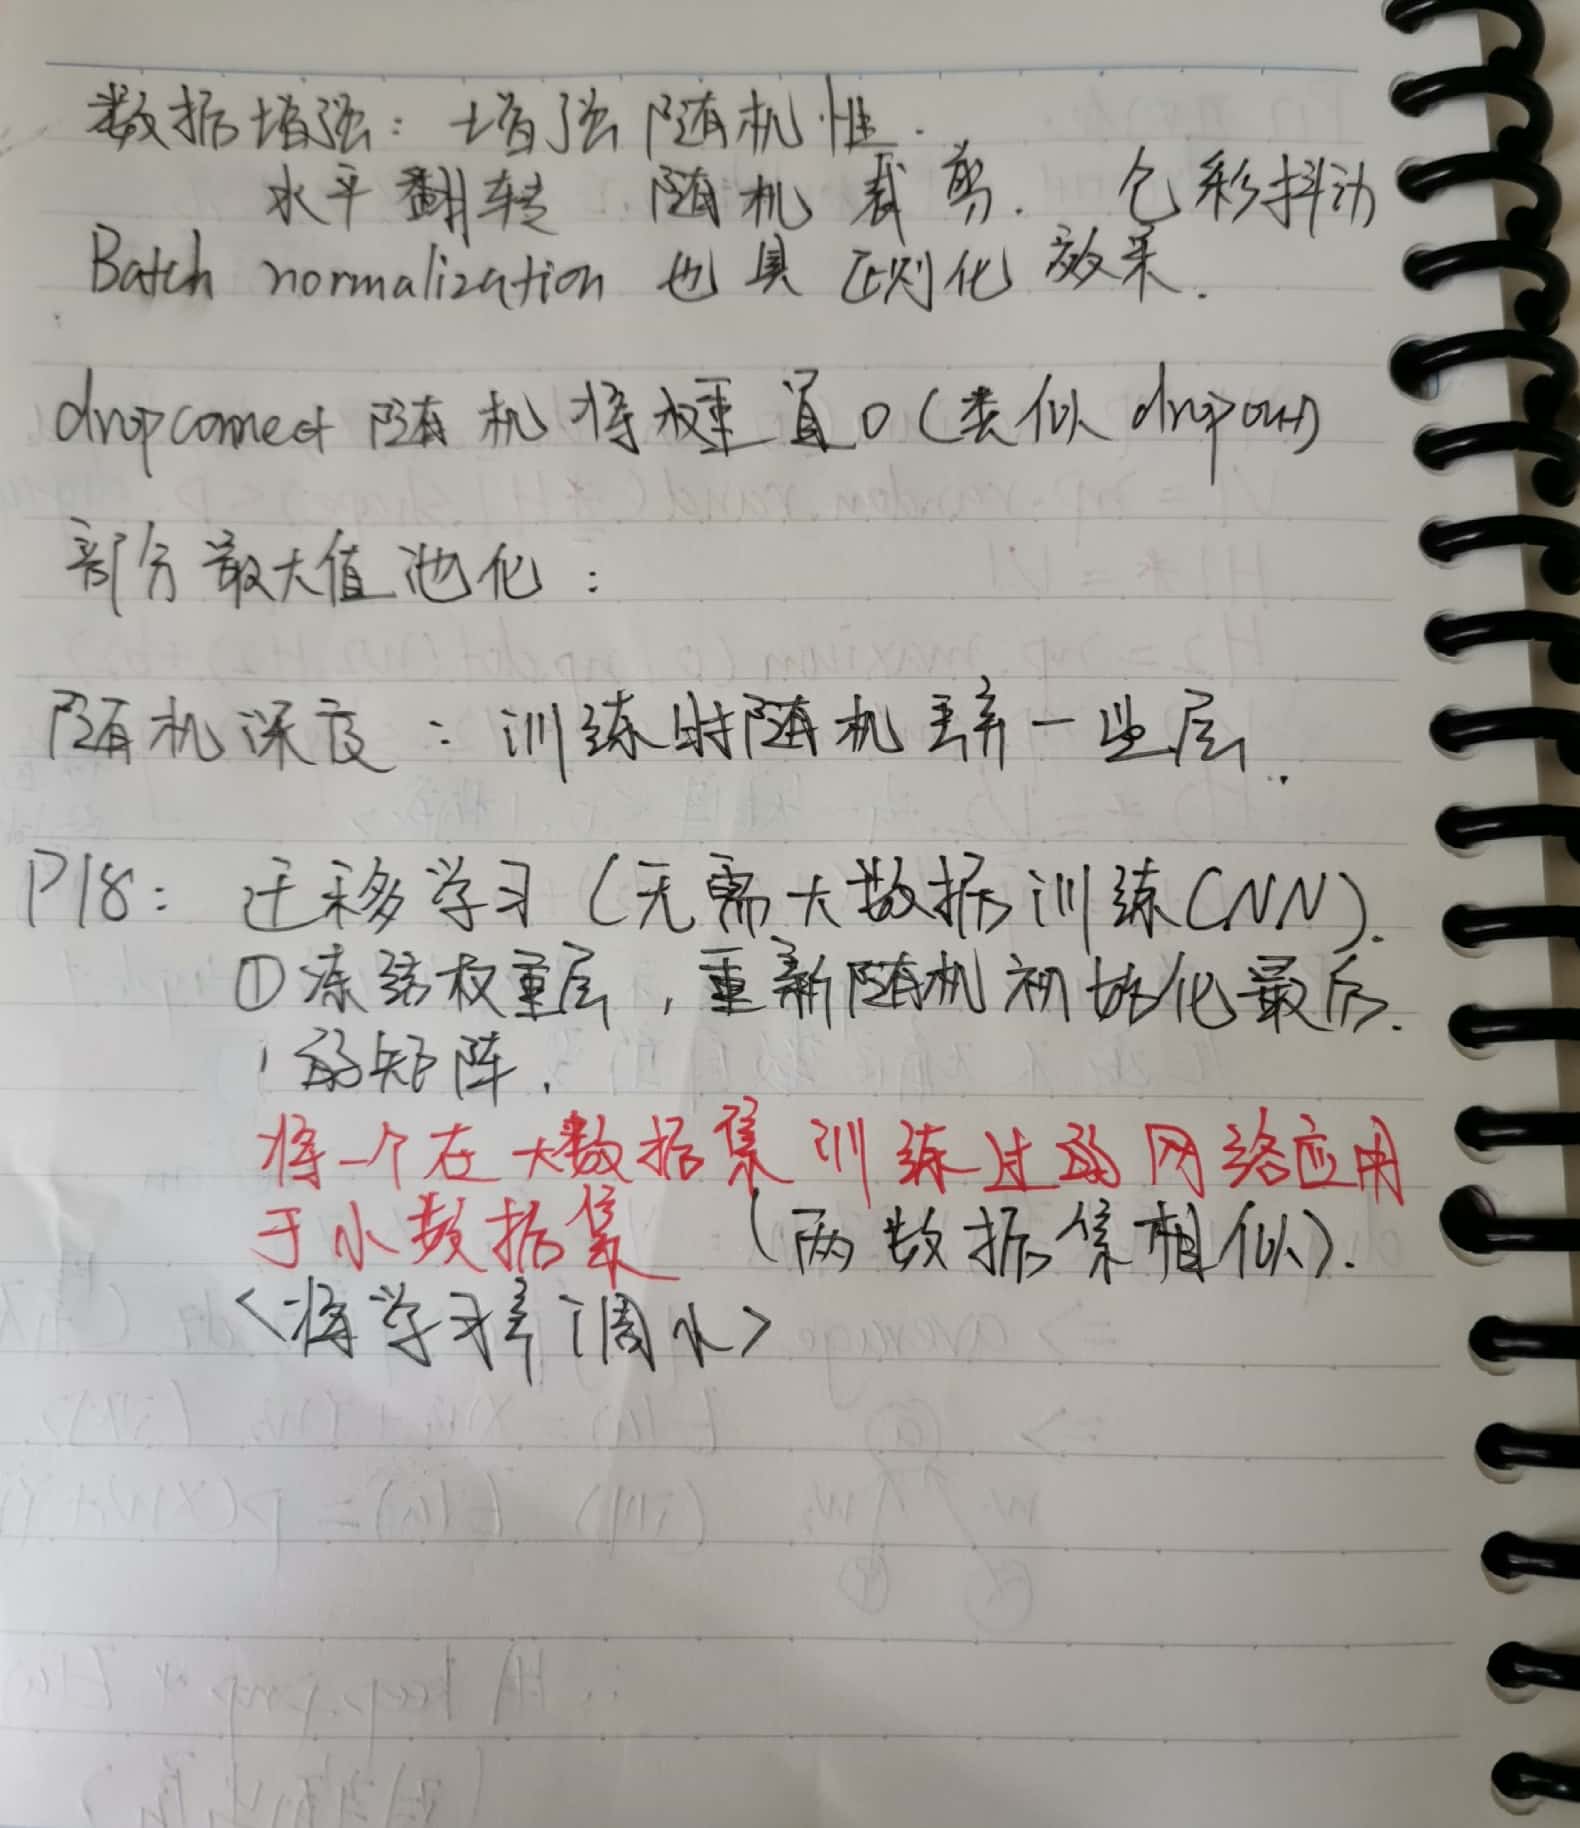 数据增强：增强随机性.
水平翻转 随机裁剪. 色彩抖动
Batch normalization 也具正则化效果.
dropconnect 随机将权重置0(类似dropout)
部分最大值池化：
随机深度：训练时随机丢弃一些层.
P18：迁移学习(无需大数据训练CNN).
①冻结权重层，重新随机初始化最后.
的矩阵.
将一个在大数据集训练过的网络应用
于小数据集 (两数据集相似).
<将学习率调小>